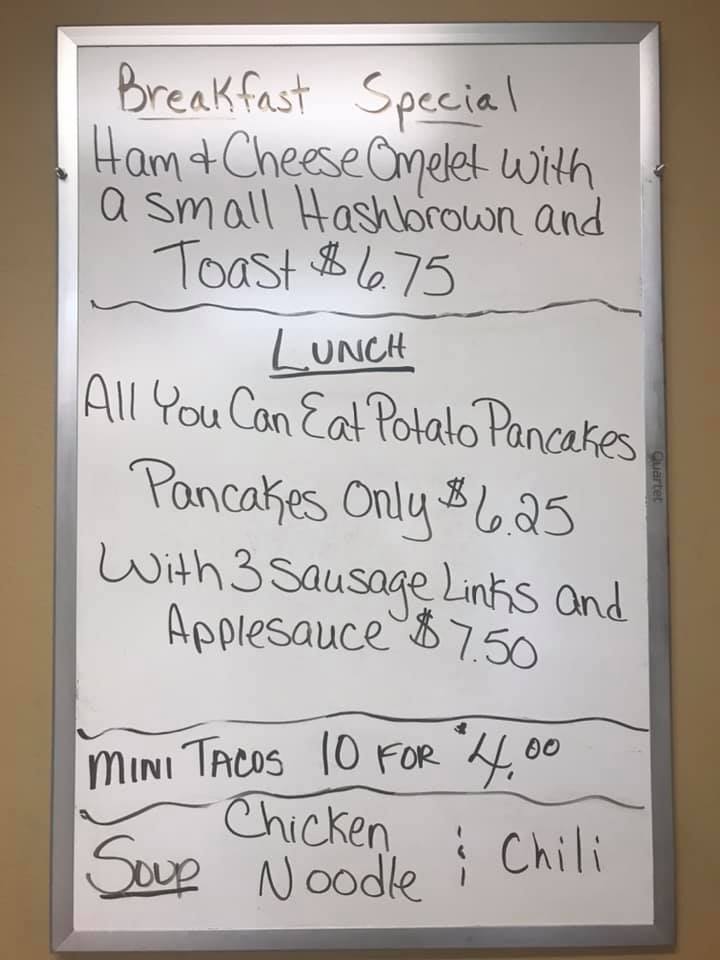 Breakfast Special
Ham & Cheese Omelet with
a small Hashbrown and
Toast $6.75
LUNCH
All You Can Eat Potato Pancakes
Pancakes Only $6.25
With 3 Sausage Links and
Applesauce $7.50
MINI TACOS 10 FOR $4.00
Soup Chicken Noodle & Chili
Quartet